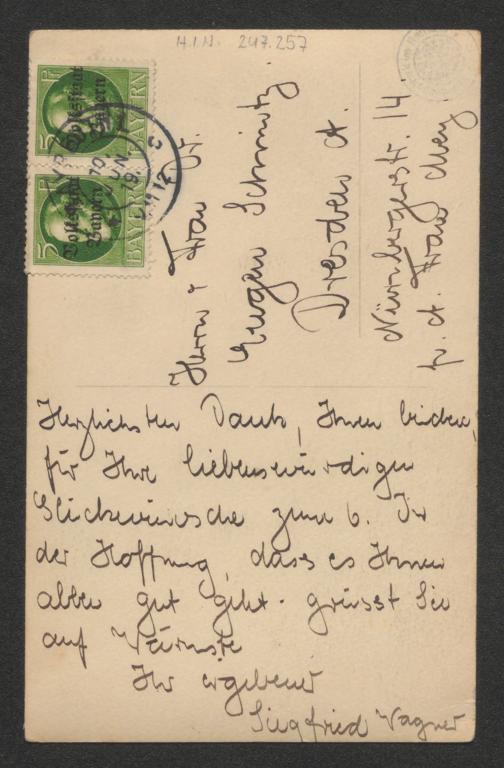 H.I.N. 247.257
5 BAYERN
Volksstaat
Bayern
5 BAYERN
Volksstaat
Bayern
10 JUN. 19.
Herrn & Frau Dr.
Eugen Schmitz
Dresden A.
Nürnbergerstr. 14.
b. A. Frau Mey
Herzlichsten Dank, Ihnen beiden,
für Ihre liebenswürdigen
Glückwünsche zum 6. In
der Hoffnung, dass es Ihnen
allen gut geht. grüsst Sie
auf Wärmste
Ihr ergebener
Siegfried Wagner